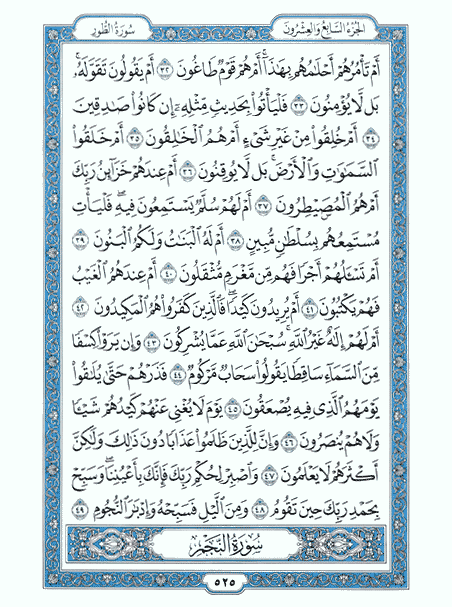 سُورَةُ الطُّورِ
الجُزْءُ السَّابِعُ وَالعِشْرُونَ
أَمْ تَأْمُرُهُمْ أَحْلَٰمُهُم بِهَٰذَآ ۚ أَمْ هُمْ قَوْمٌ طَاغُونَ ٣٢ أَمْ يَقُولُونَ تَقَوَّلَهُۥ ۚ
بَل لَّا يُؤْمِنُونَ ٣٣ فَلْيَأْتُوا۟ بِحَدِيثٍ مِّثْلِهِۦٓ إِن كَانُوا۟ صَٰدِقِينَ
٣٤ أَمْ خُلِقُوا۟ مِنْ غَيْرِ شَىْءٍ أَمْ هُمُ ٱلْخَٰلِقُونَ ٣٥ أَمْ خَلَقُوا۟
ٱلسَّمَٰوَٰتِ وَٱلْأَرْضَ ۚ بَل لَّا يُوقِنُونَ ٣٦ أَمْ عِندَهُمْ خَزَآئِنُ رَبِّكَ
أَمْ هُمُ ٱلْمُصَۣيْطِرُونَ ٣٧ أَمْ لَهُمْ سُلَّمٌ يَسْتَمِعُونَ فِيهِ ۖ فَلْيَأْتِ
مُسْتَمِعُهُم بِسُلْطَٰنٍ مُّبِينٍ ٣٨ أَمْ لَهُ ٱلْبَنَٰتُ وَلَكُمُ ٱلْبَنُونَ ٣٩
أَمْ تَسْـَٔلُهُمْ أَجْرًا فَهُم مِّن مَّغْرَمٍ مُّثْقَلُونَ ٤٠ أَمْ عِندَهُمُ ٱلْغَيْبُ
فَهُمْ يَكْتُبُونَ ٤١ أَمْ يُرِيدُونَ كَيْدًا ۖ فَٱلَّذِينَ كَفَرُوا۟ هُمُ ٱلْمَكِيدُونَ ٤٢
أَمْ لَهُمْ إِلَٰهٌ غَيْرُ ٱللَّهِ ۚ سُبْحَٰنَ ٱللَّهِ عَمَّا يُشْرِكُونَ ٤٣ وَإِن يَرَوْا۟ كِسْفًا
مِّنَ ٱلسَّمَآءِ سَاقِطًا يَقُولُوا۟ سَحَابٌ مَّرْكُومٌ ٤٤ فَذَرْهُمْ حَتَّىٰ يُلَٰقُوا۟
يَوْمَهُمُ ٱلَّذِى فِيهِ يُصْعَقُونَ ٤٥ يَوْمَ لَا يُغْنِى عَنْهُمْ كَيْدُهُمْ شَيْـًٔا
وَلَا هُمْ يُنصَرُونَ ٤٦ وَإِنَّ لِلَّذِينَ ظَلَمُوا۟ عَذَابًا دُونَ ذَٰلِكَ وَلَٰكِنَّ
أَكْثَرَهُمْ لَا يَعْلَمُونَ ٤٧ وَٱصْبِرْ لِحُكْمِ رَبِّكَ فَإِنَّكَ بِأَعْيُنِنَا ۖ وَسَبِّحْ
بِحَمْدِ رَبِّكَ حِينَ تَقُومُ ٤٨ وَمِنَ ٱلَّيْلِ فَسَبِّحْهُ وَإِدْبَٰرَ ٱلنُّجُومِ ٤٩
سُورَةُ النَّجْمِ
٥٢٥